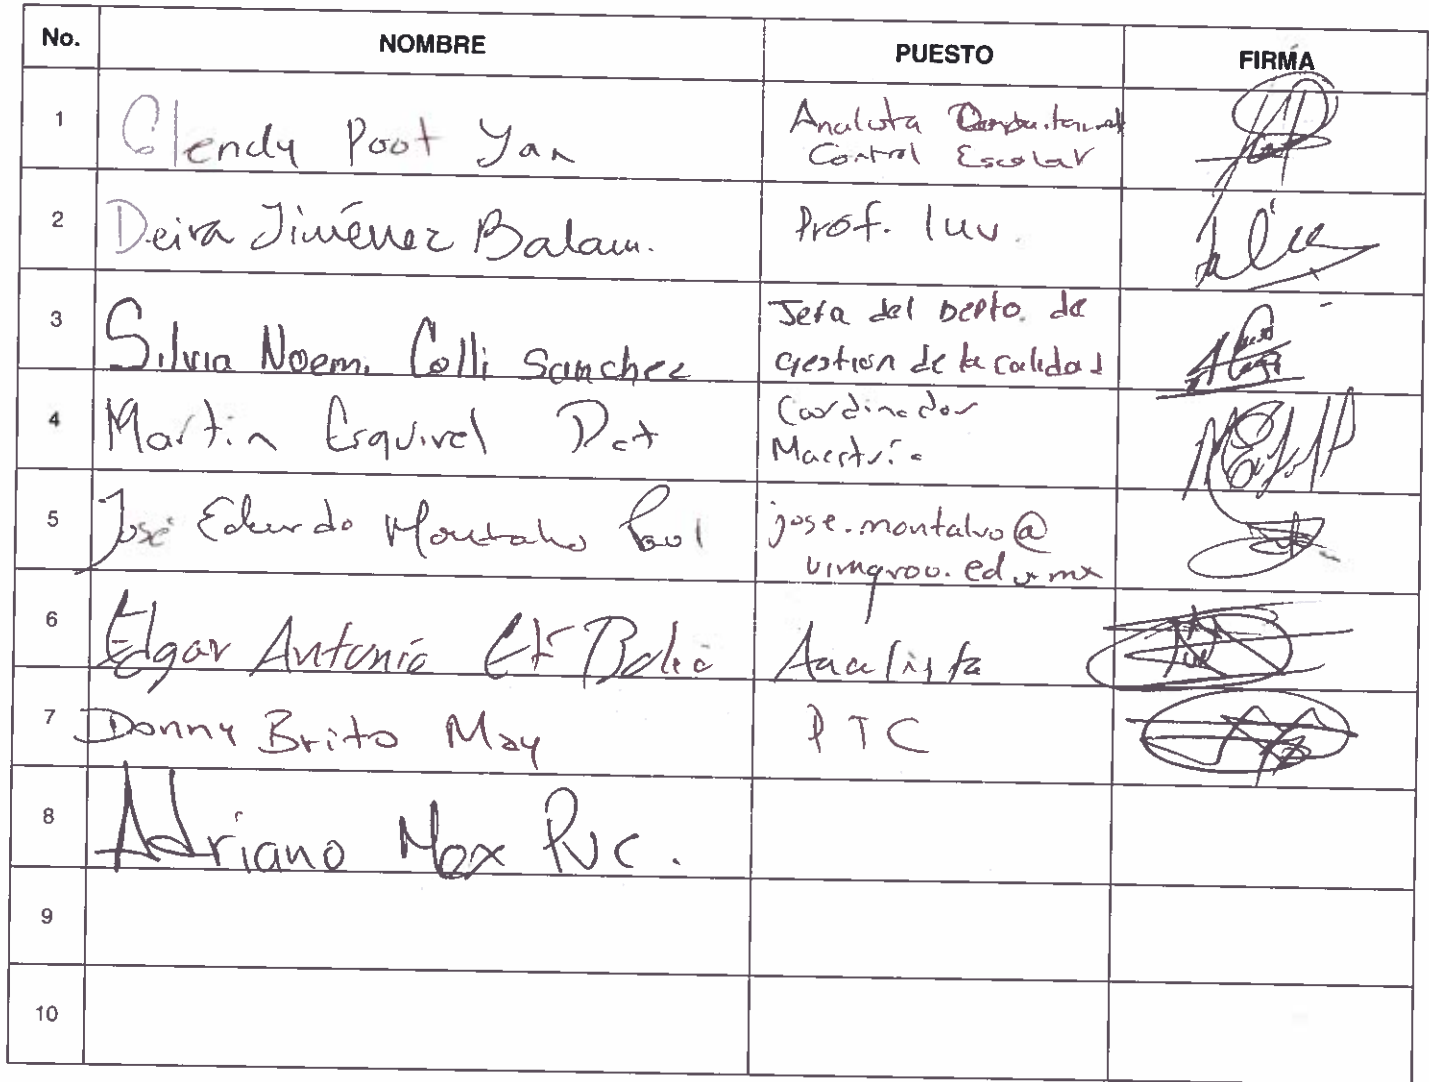 No. NOMBRE PUESTO FIRMA
1 Glendy Poot Yan Analista
Control Escolar
2 Deira Jiménez Balam. Prof. Inv.
3 Silvia Noemi Colli Sanchez Jefa del Depto. de
Gestion de la calidad
4 Martin Esquivel Pat Coordinador
Maestría
5 José Eduardo Montalvo Pool jose.montalvo@
uimqroo.edu.mx
6 Edgar Antonio Analista
7 Donny Brito May PTC
8 Adriano Mex Puc.
9
10